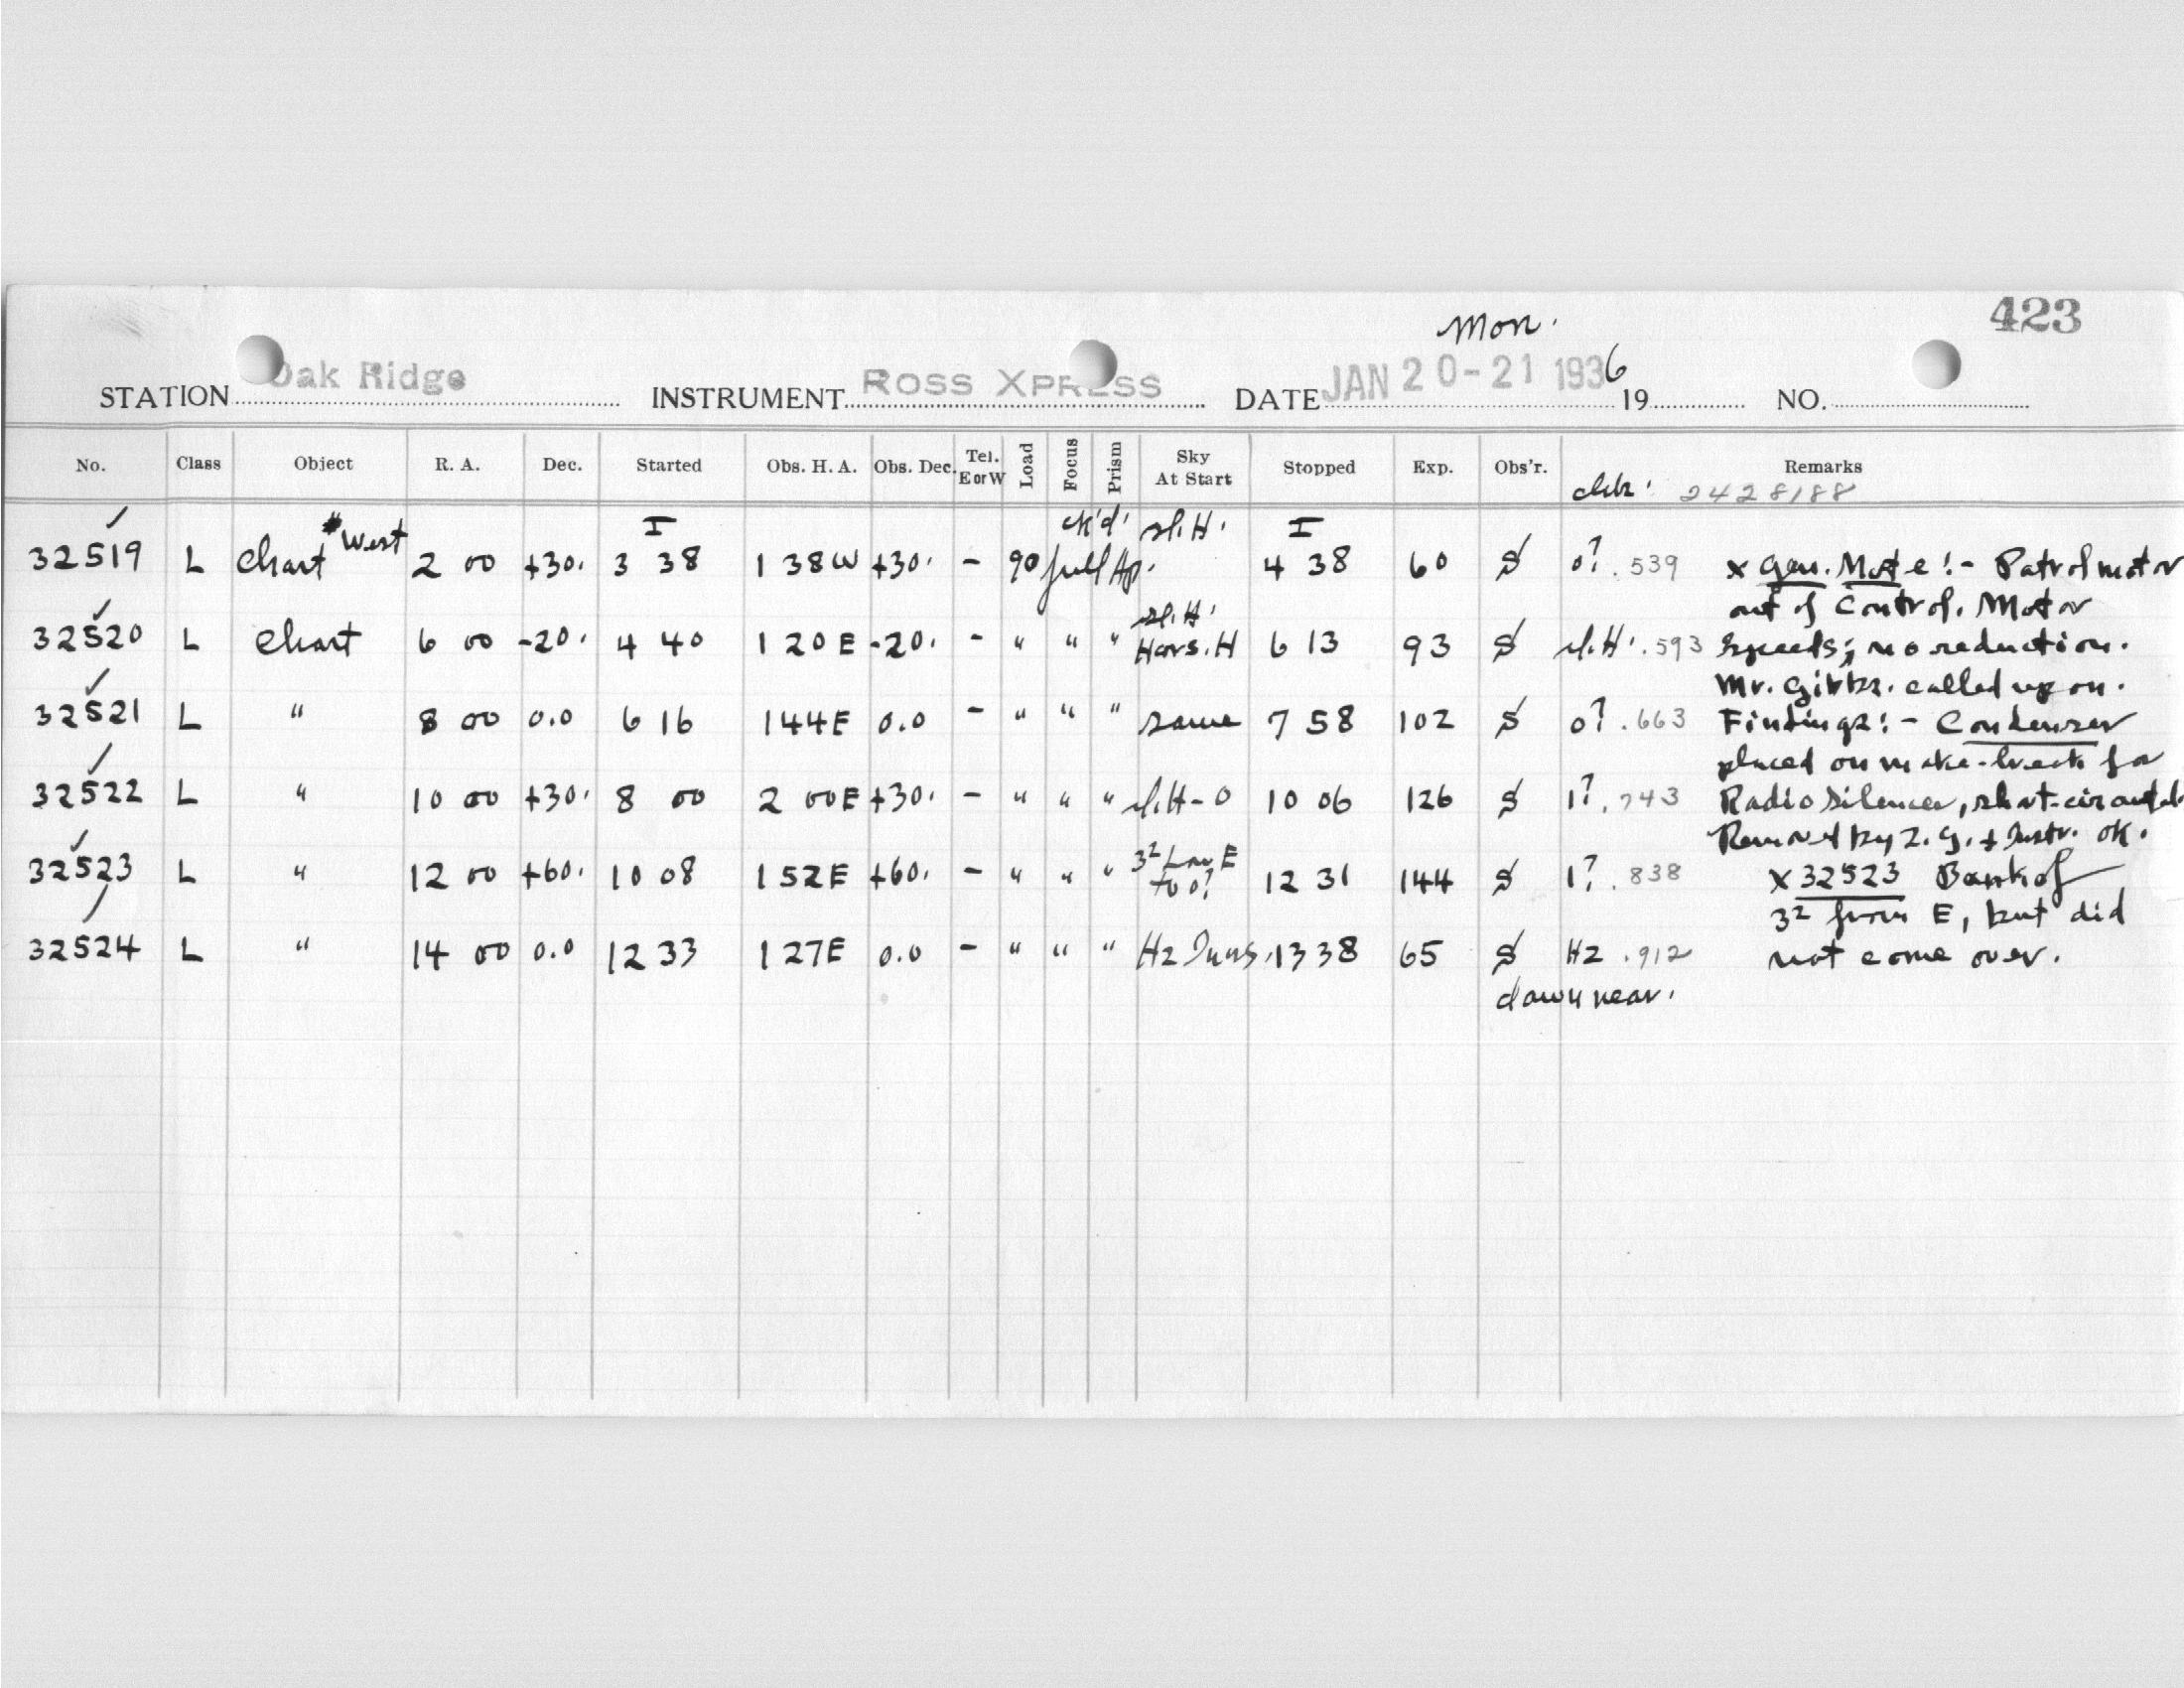 423
Mon.
STATION Oak Ridge INSTRUMENT ROSS XPRESS DATE JAN 20-21 1936 19 NO.
No. Class Object R. A. Dec. Started Obs. H. A. Obs. Dec. Tel. E or W Load Focus Prism Sky At Start Stopped Exp. Obs'r. Remarks
2428188
West I ck'd. sl. H. I
32519 L Chart 2 00 +30. 3 38 1 38W +30. - 90 full Ap. 4 38 60 $ 0? .539 x Gen. Note:- Patrol motor
out of control. Motor
sl. H.
32520 L Chart 6 00 -20. 4 40 1 20E -20. - " " " Hors. H 6 13 93 $ sl. H. .593 speeds; no reduction.
Mr. Gibbs. called upon.
32521 L " 8 00 0.0 6 16 1 44E 0.0 - " " " same 7 58 102 $ 0? .663 Findings:- Condenser
placed on make-break for
32522 L " 10 00 +30. 8 00 2 00E +30. - " " " sl. H-0 10 06 126 $ 1? .743 Radio silencer, short-circuited.
Removed by Z. G. + Instr. OK.
32523 L " 12 00 +60. 10 08 1 52E +60. - " " " 3² Low E to 0? 12 31 144 $ 1? .838 x 32523 Bank of
3² from E, but did
32524 L " 14 00 0.0 12 33 1 27E 0.0 - " " " Hz 13 38 65 $ Hz .912 not come over.
dawn near.